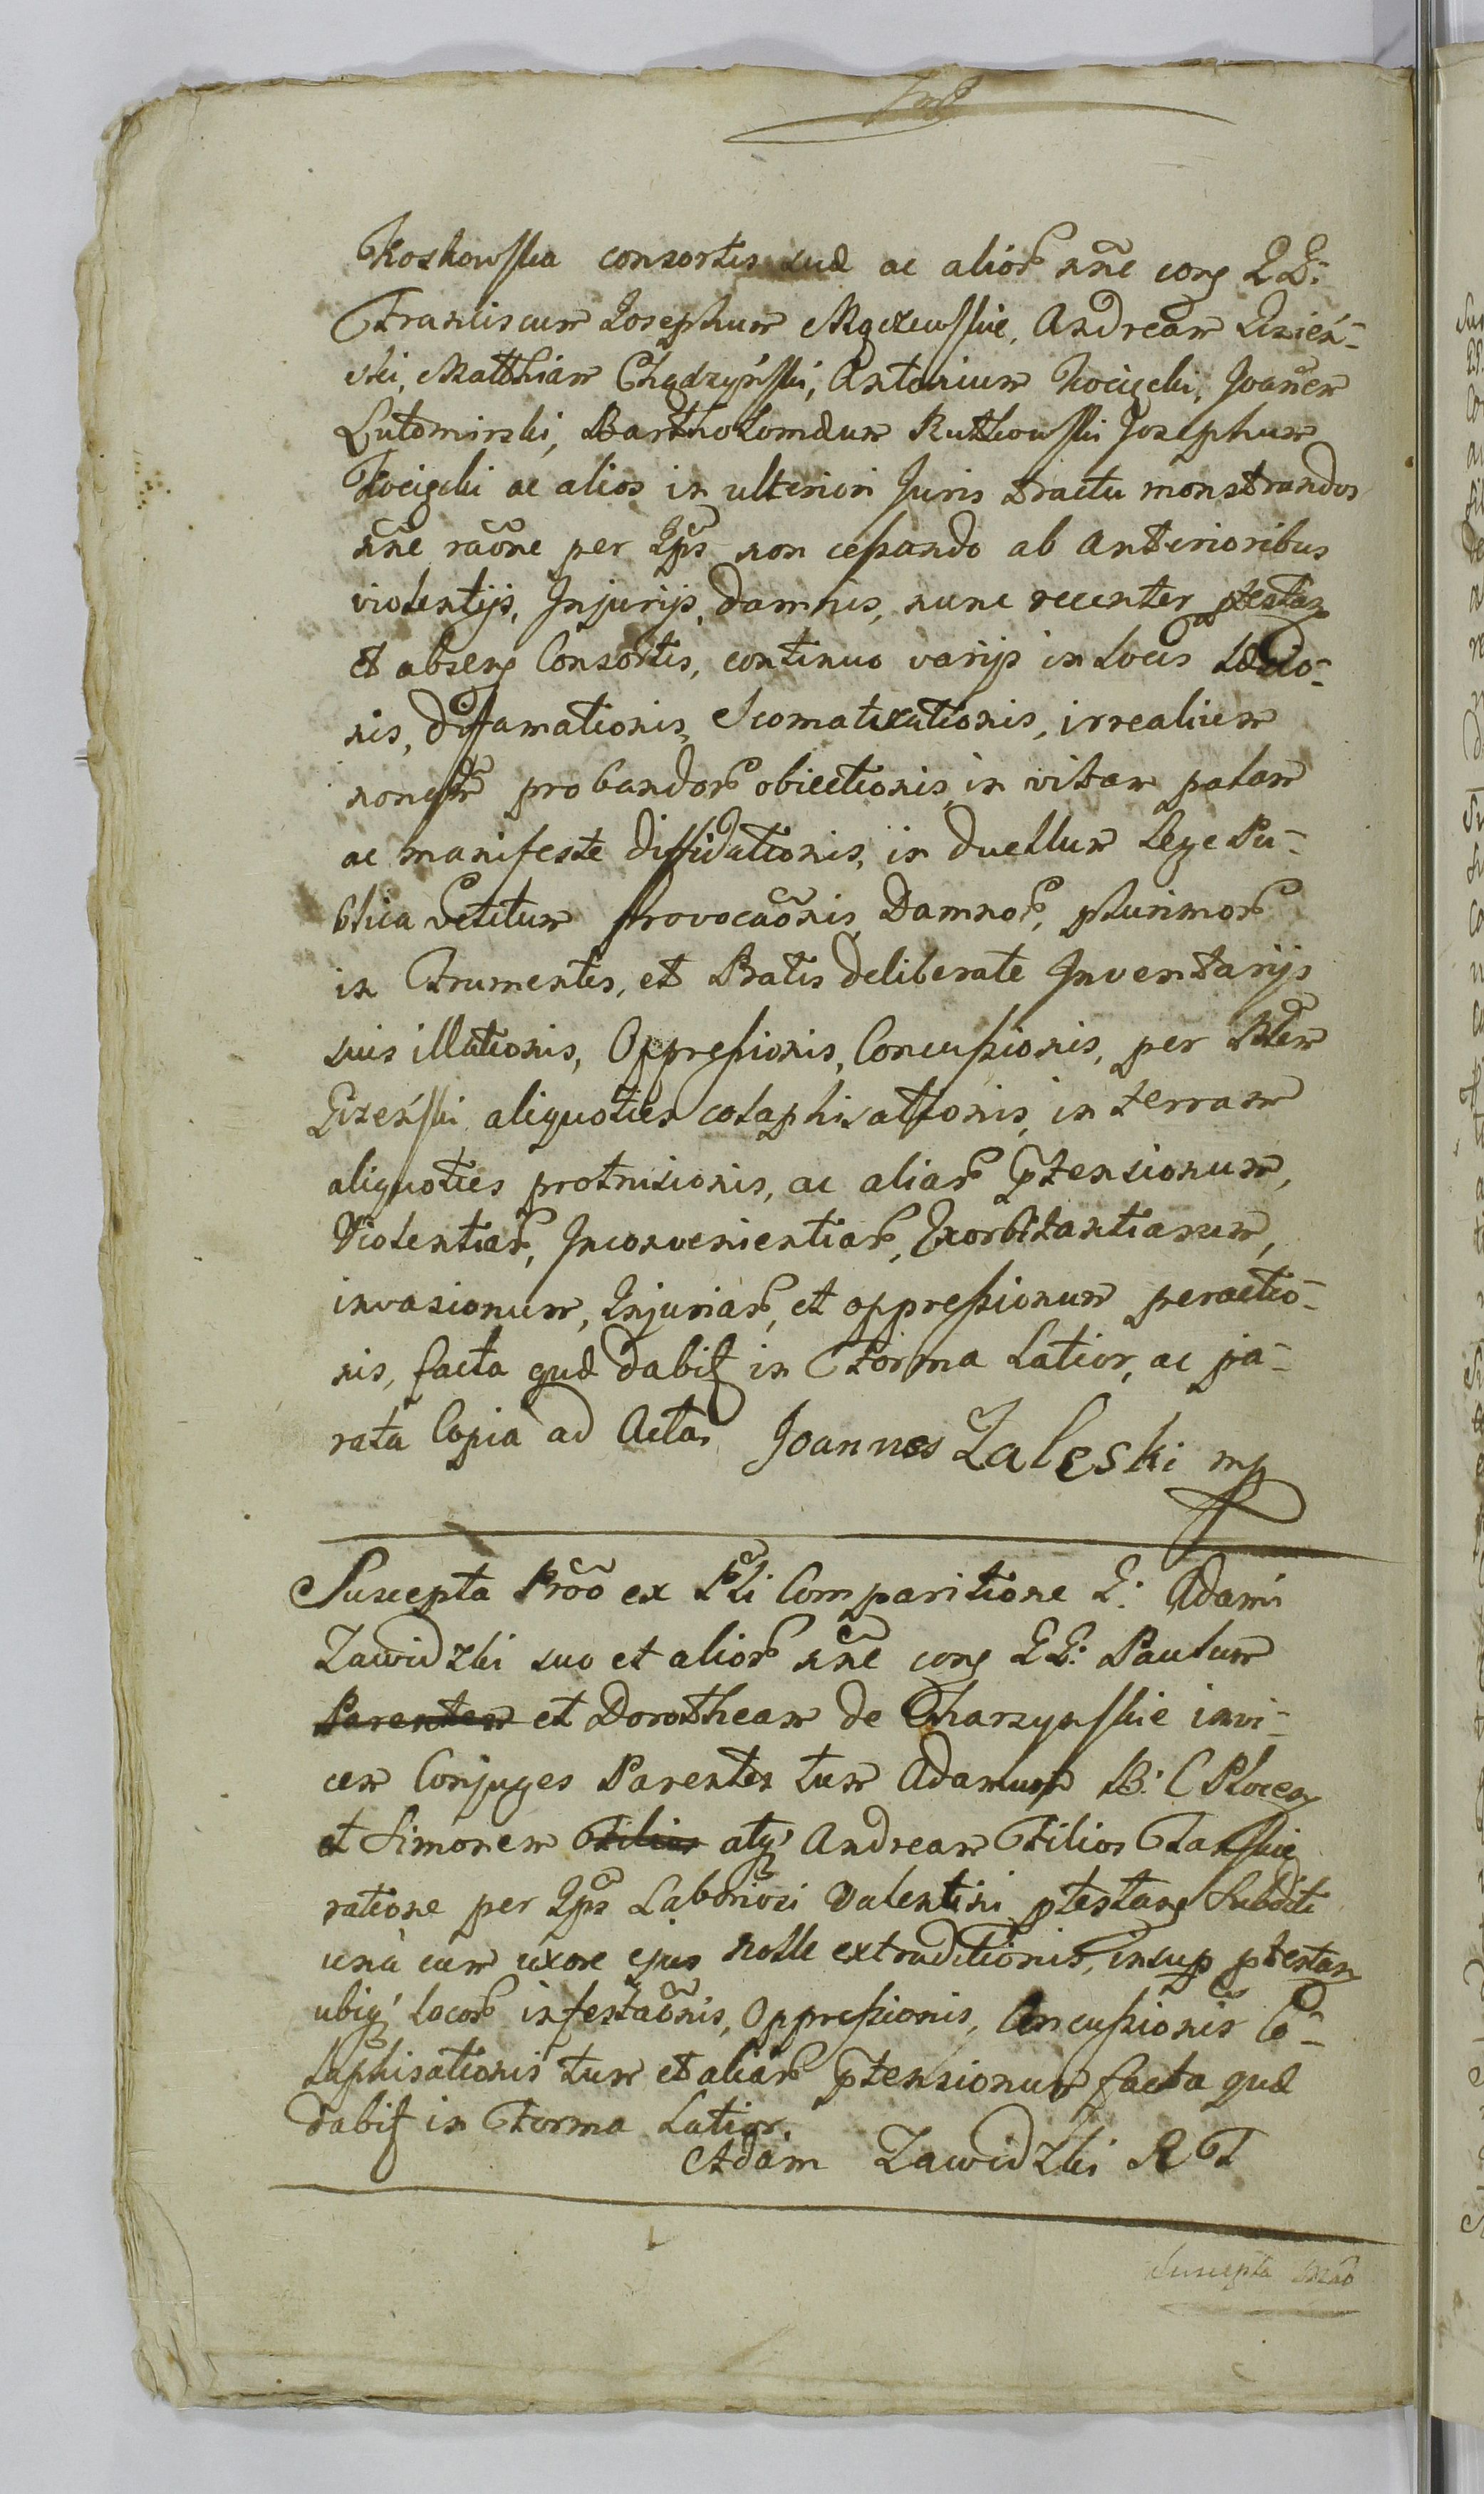 Koskowska consortis suæ ac alior nne cong GG:
Franciscum Josephum Mączewskie, Andream Giżeń-
ski, Matthiam Chądzyński, Antonium Kocięcki, Joanem
Lutomirski, Bartholomæum Rutkowski Josephum
Kocięcki ac alios in ulteriori Juris tractu monstrandos
nne raone per Ips non cessando ab anterioribus
violentijs, Injurijs, damnis, nunc recenter ptestan
et absen Consortis, continuo varijs in Locis Læsio-
nis, diffamationis, Scomatizationis, irrealium
nonqm probandor obiectionis, in vitam palam
ac manifeste diffidationis, in duellum Lege Pu-
blica vetitum Provocaonis, Damnor, plurimor
in Frumentis, et Pratis deliberate Inventarijs
suis illationis, Oppressionis, Concussionis, per
Giżeński aliquoties colaphisationis, in terram
aliquoties protrusionis, ac aliar ptensionum,
Violentiar, Inconvenientiar, Exorbitantiarum,
invasionum, Injuriar, et oppressionum peractio-
nis, facta quæ dabit in Forma Latior, ac pa-
rata Copia ad Acta. Joannes Zaleski mp
Suscepta Proo ex Pli Comparitione G: Adami
Zawidzki suo et alior nne cong GG: Paulum
Parentem et Dorotheam de Charzynskie invi-
cem Conjuges Parentes tum Adamum B: C Plocen
et Simonem Filios atq Andream Filios
ratione per Ips Laboriosi Valentini ptestang Subditi
una cum uxore ejus nolle extraditionis, insup ptestan
ubiq locor infestaonis, Oppressionis, Concussionis Co-
laphisationis tum et aliar ptensionum facta quæ
dabit in Forma Latior.
Adam Zawidzki RT
Suscepta